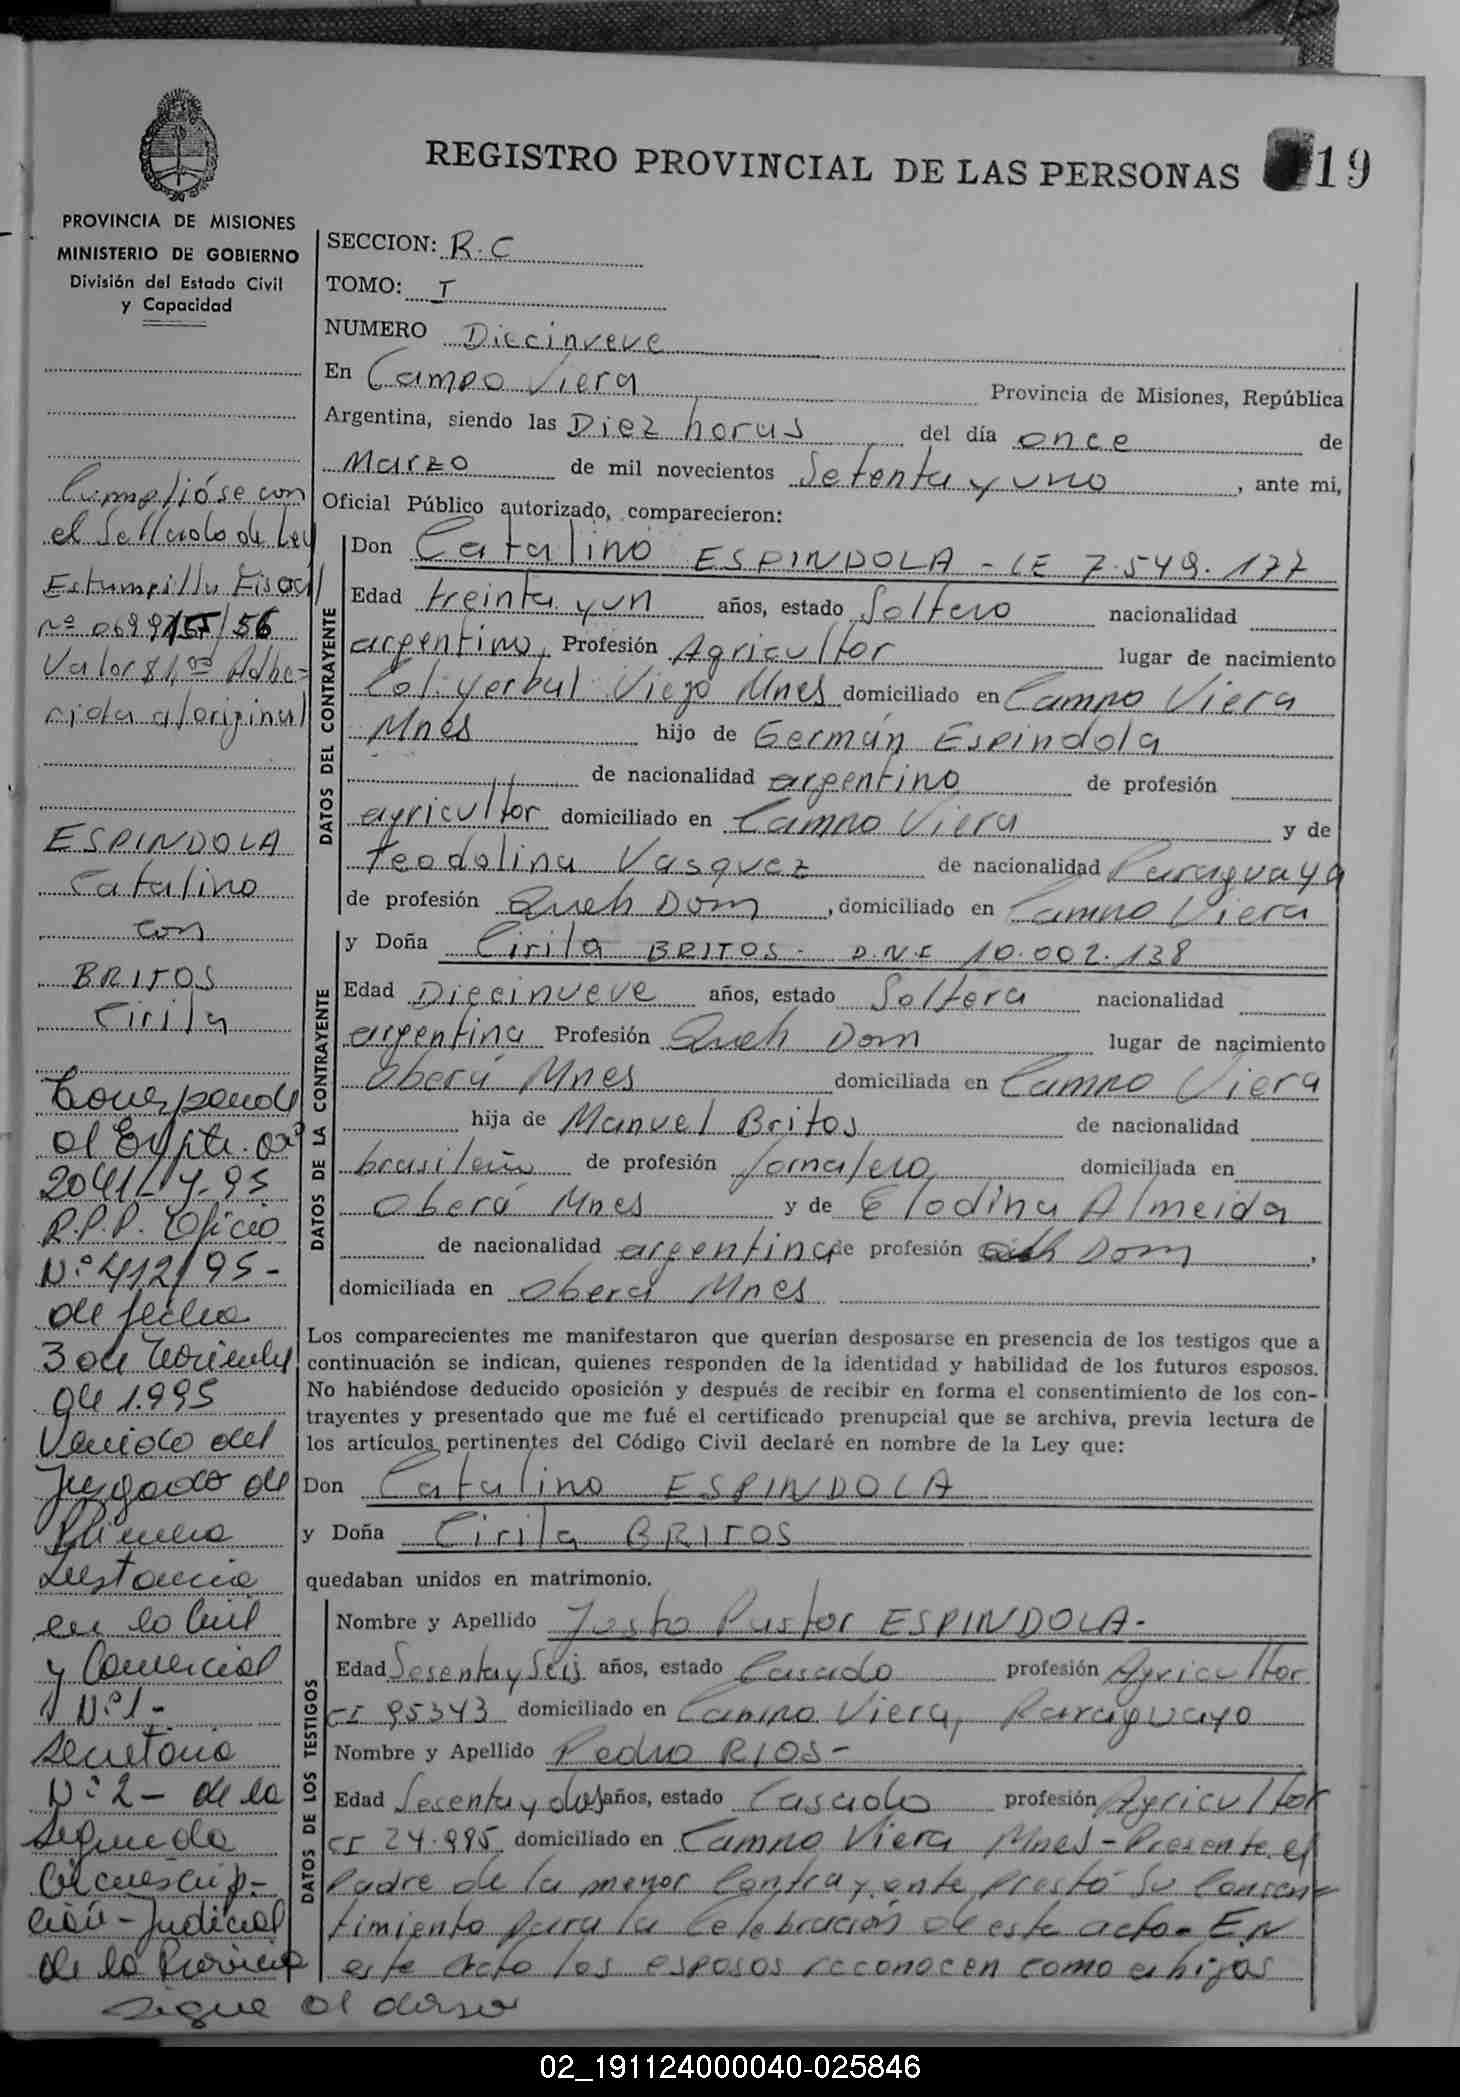 REGISTRO PROVINCIAL DE LAS PERSONAS
19
PROVINCIA DE MISIONES
MINISTERIO DE GOBIERNO
División del Estado Civil
y Capacidad
Cumplióse con
el Sellado de Ley
Estampilla Fiscal
Nº 069955/56
Valor $1,00 Adhe-
rida a/original
ESPINDOLA
Catalino
con
BRITOS
Cirila
Corresponde
al Expte.
2041-Y-95
R.P.P. Oficio
N:º 412/95-
de fecha
3 de Noviembre
de 1.995
Venido del
Juzgado de
Primera
Instancia
en lo Civil
y Comercial
Nº1-
Secretaria
Nº2- de la
Segunda
Circunscrip-
ción-Judicial
de la Provincia
sigue al dorso
SECCION: R.C
TOMO: I
NUMERO Diecinueve
En Campo Viera Provincia de Misiones, República
Argentina, siendo las Diez horas del día once de
Marzo de mil novecientos Setenta y uno, ante mi,
Oficial Público autorizado, comparecieron:
DATOS DEL CONTRAYENTE
Don Catalino ESPINDOLA - LE 7.549.177
Edad treinta y un años, estado Soltero nacionalidad
argentino, Profesión Agricultor lugar de nacimiento
Col. Yerbal Viejo Mnes domiciliado en Campo Viera
Mnes hijo de Germán Espindola
de nacionalidad argentino de profesión
agricultor domiciliado en Campo Viera y de
Teodolina Vasquez de nacionalidad Paraguaya
de profesión Queh Dom, domiciliado en Campo Viera
DATOS DE LA CONTRAYENTE
y Doña Cirila BRITOS - D.N.I 10.002.138
Edad Diecinueve años, estado Soltera nacionalidad
argentina Profesión Queh Dom lugar de nacimiento
Oberá Mnes domiciliada en Campo Viera
hija de Manuel Britos de nacionalidad
brasileño de profesión Jornalero domiciliada en
Oberá Mnes y de Elodina Almeida
de nacionalidad argentina de profesión Queh Dom,
domiciliada en Oberá Mnes
Los comparecientes me manifestaron que querían desposarse en presencia de los testigos que a
continuación se indican, quienes responden de la identidad y habilidad de los futuros esposos.
No habiéndose deducido oposición y después de recibir en forma el consentimiento de los con-
trayentes y presentado que me fué el certificado prenupcial que se archiva, previa lectura de
los artículos pertinentes del Código Civil declaré en nombre de la Ley que:
Don Catalino ESPINDOLA
y Doña Cirila BRITOS
quedaban unidos en matrimonio.
DATOS DE LOS TESTIGOS
Nombre y Apellido Justo Pastor ESPINDOLA-
Edad Sesenta y Seis años, estado Casado profesión Agricultor
CI 95343 domiciliado en Campo Viera, Paraguayo
Nombre y Apellido Pedro RIOS-
Edad Sesenta y dos años, estado Casado profesión Agricultor
CI 24.995 domiciliado en Campo Viera Mnes-Presente el
Padre de la menor Contrayente prestó Su Consen-
timiento para la Celebración de este acto- EN
este Acto los esposos reconocen como a hijos
02_191124000040-025846